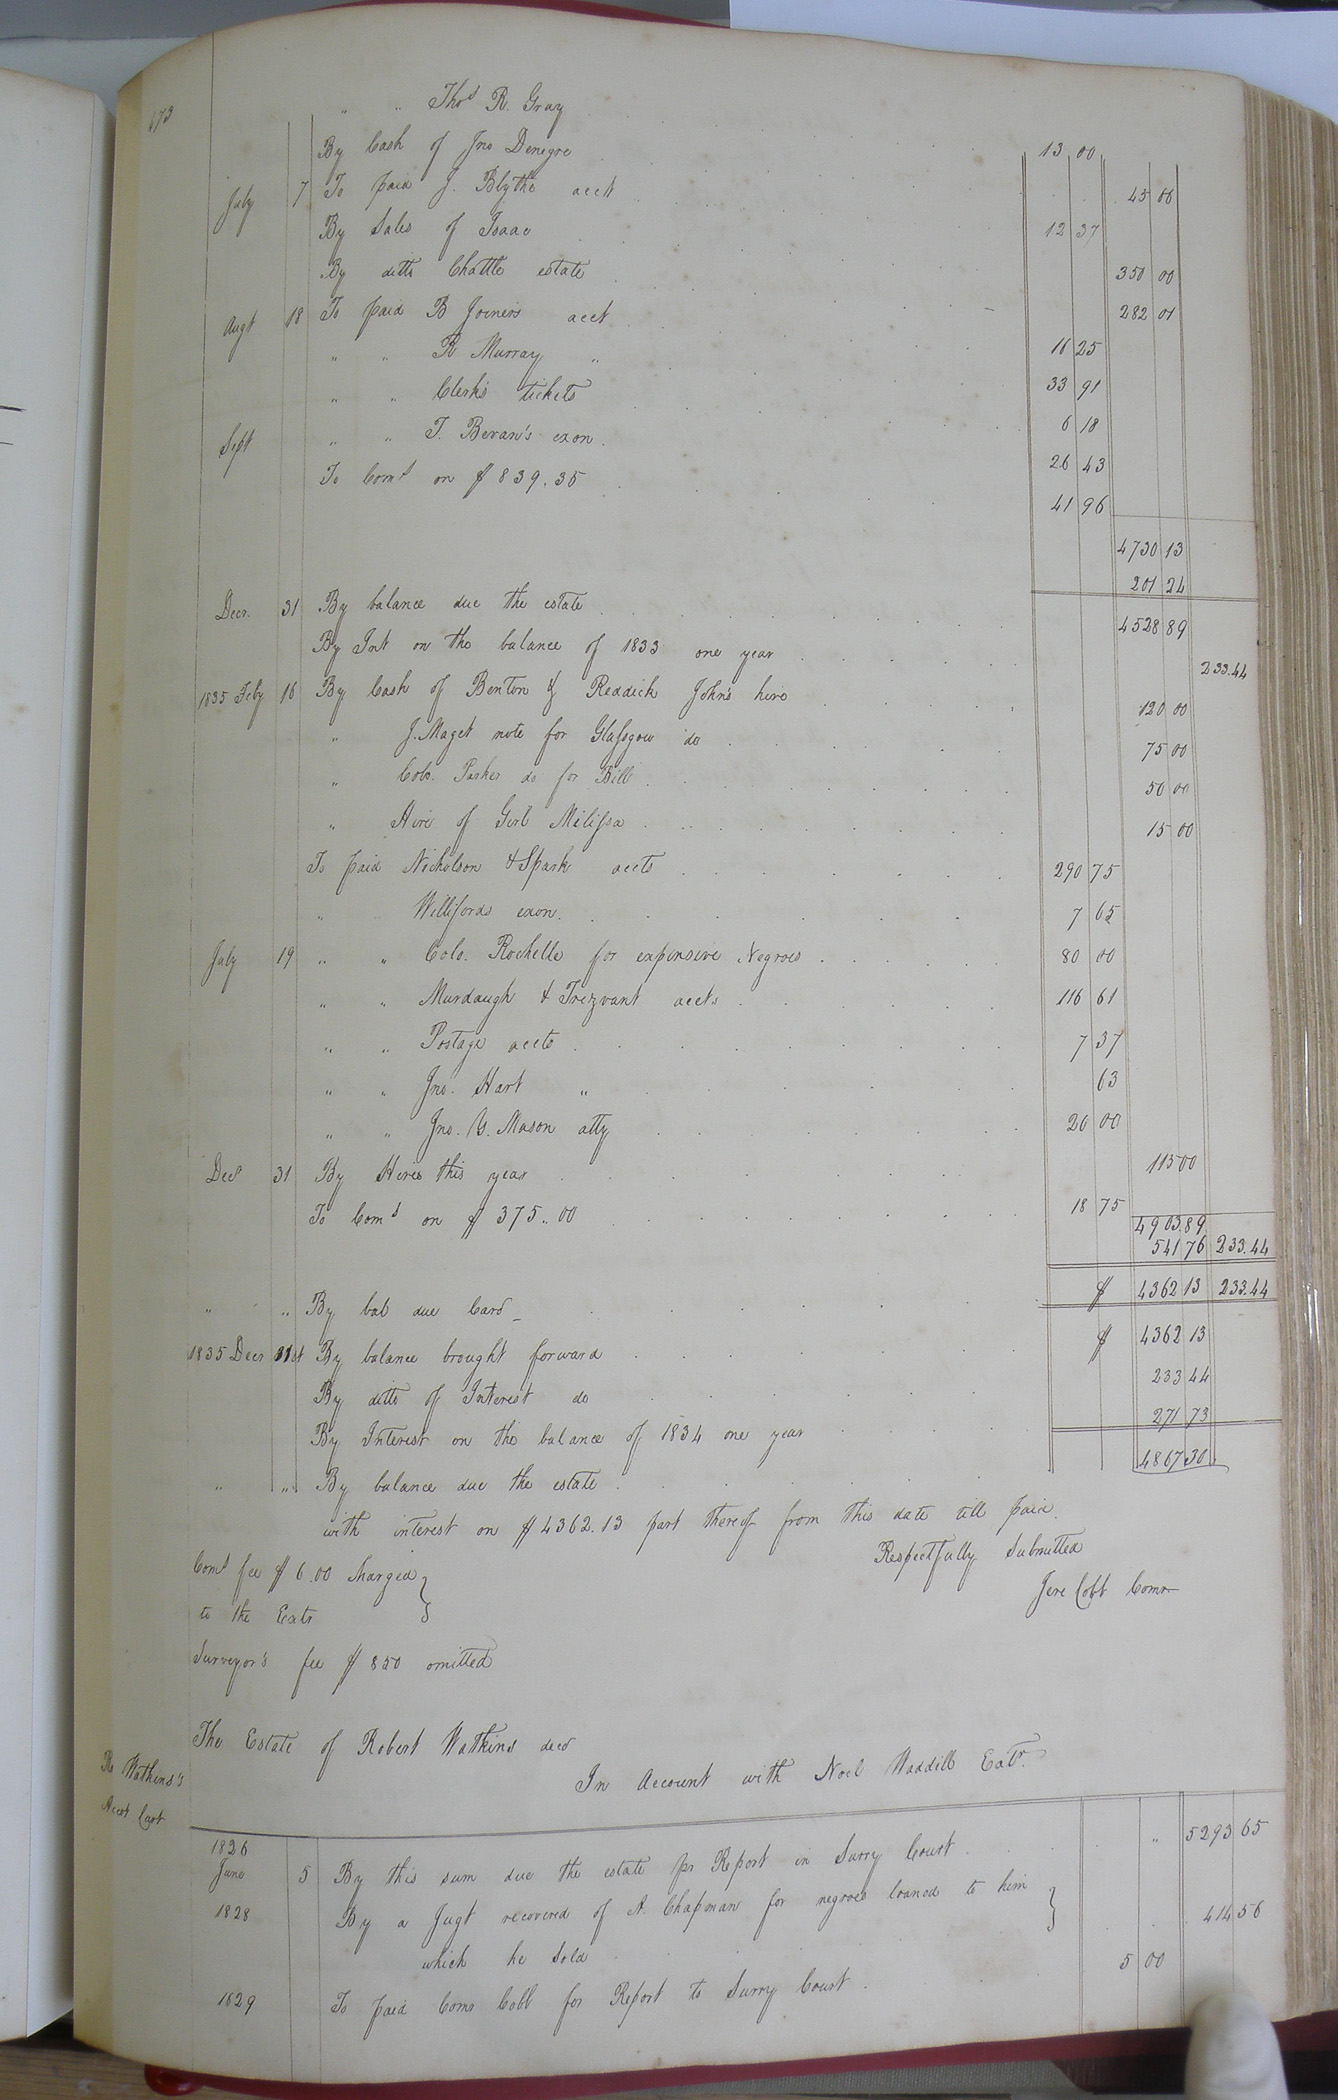 473
" " Thos R. Gray 13 00
By Cash of Jno Denegre 45 00
July 7 To paid J. Blythe acct 12 37
By Sales of Isaac 350 00
By ditto Chattle estate 282 01
Augt 18 To paid B Joiners acct 16 25
" " R Murray " 33 91
" " Clerks tickets 6 18
Sept " " T. Bevan's exon. 26 43
To Coms on $839.35 41 96
4730 13
201 24
Decr. 31 By balance due the estate 4528 89
By Int on the balance of 1833 one year 233.44
1835 Feby 16 By Cash of Benton & Reddick John's hire 120 00
" J. Maget note for Glasgow do 75 00
" Colo. Parker do for Bill 50 00
" Hire of Girl Milissa 15 00
To paid Nicholson & Spark accts 290 75
" " Willifords exon. 7 65
July 19 " " Colo. Rochelle for expensive Negroes 80 00
" " Murdaugh & Trezvant accts 116 61
" " Postage accts 7 37
" " Jno. Hart " 63
" " Jno. Y. Mason atty 20 00
Decr 31 By Hires this year 115 00
To Coms on $375..00 18 75
4903.89
541 76 233.44
" " By bal due Card $ 4362 13 233.44
1835 Decr 31st By balance brought forward $ 4362 13
By ditto of Interest do 233 44
By Interest on the balance of 1834 one year 271 73
" " By balance due the estate 4867 30
with interest on $4362.13 part thereof from this date till paid.
Respectfully Submitted
Jere Cobb Comr
Coms fee $6.00 Charged }
to the Exts
Surveyor's fee $850 omitted
The Estate of Robert Watkins decd
In Account with Noel Waddill Extr.
Ro Watkins's
Acct Curt
1826
June 5 By this sum due the estate pr Report in Surry Court " 5293 65
1828 By a Jugt recovered of A. Chapman for negroes loaned to him }
which he sold 414 56
1829 To paid Comr Cobb for Report to Surry Court 5 00